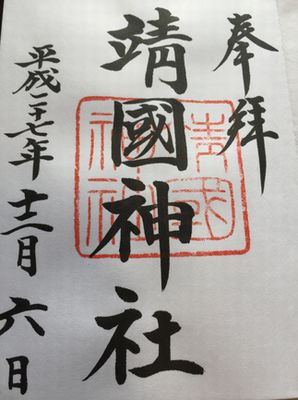 奉拝
靖國神社
靖国神社
平成二十七年十二月六日